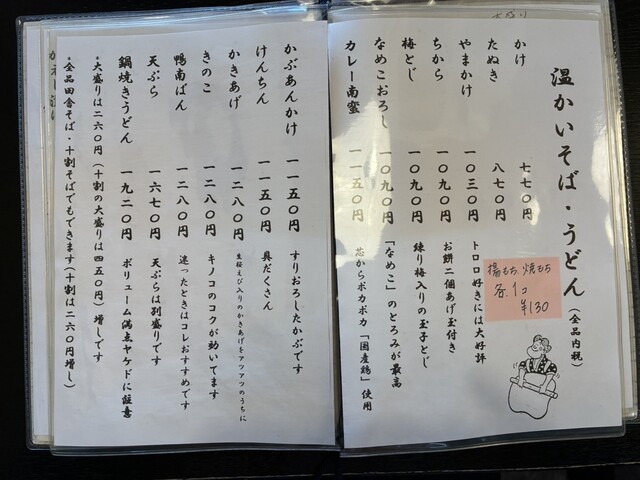 温かいそば・うどん（全品内税）
かけ 七七〇円
たぬき 八七〇円
やまかけ 一〇三〇円 トロロ好きには大好評
ちから 一〇九〇円 お餅二個あげ玉付き
梅とじ 一〇九〇円 練り梅入りの玉子とじ
なめこおろし 一〇九〇円 「なめこ」のとろみが最高
カレー南蛮 一一五〇円 芯からポカポカ「国産鶏」使用
揚もち、焼もち
各1コ
¥130
かぶあんかけ 一一五〇円 すりおろしたかぶです
けんちん 一一五〇円 具だくさん
かきあげ 一二八〇円 生桜えび入りのかきあげをアツアツのうちに
きのこ 一二八〇円 キノコのコクが効いてます
鴨南ばん 一二八〇円 迷ったときはコレおすすめです
天ぷら 一六七〇円 天ぷらは別盛りです
鍋焼きうどん 一九二〇円 ボリューム満点ヤケドに注意
・大盛りは二六〇円（十割の大盛りは四五〇円）増しです
・全品田舎そば・十割そばでもできます（十割は二六〇円増し）